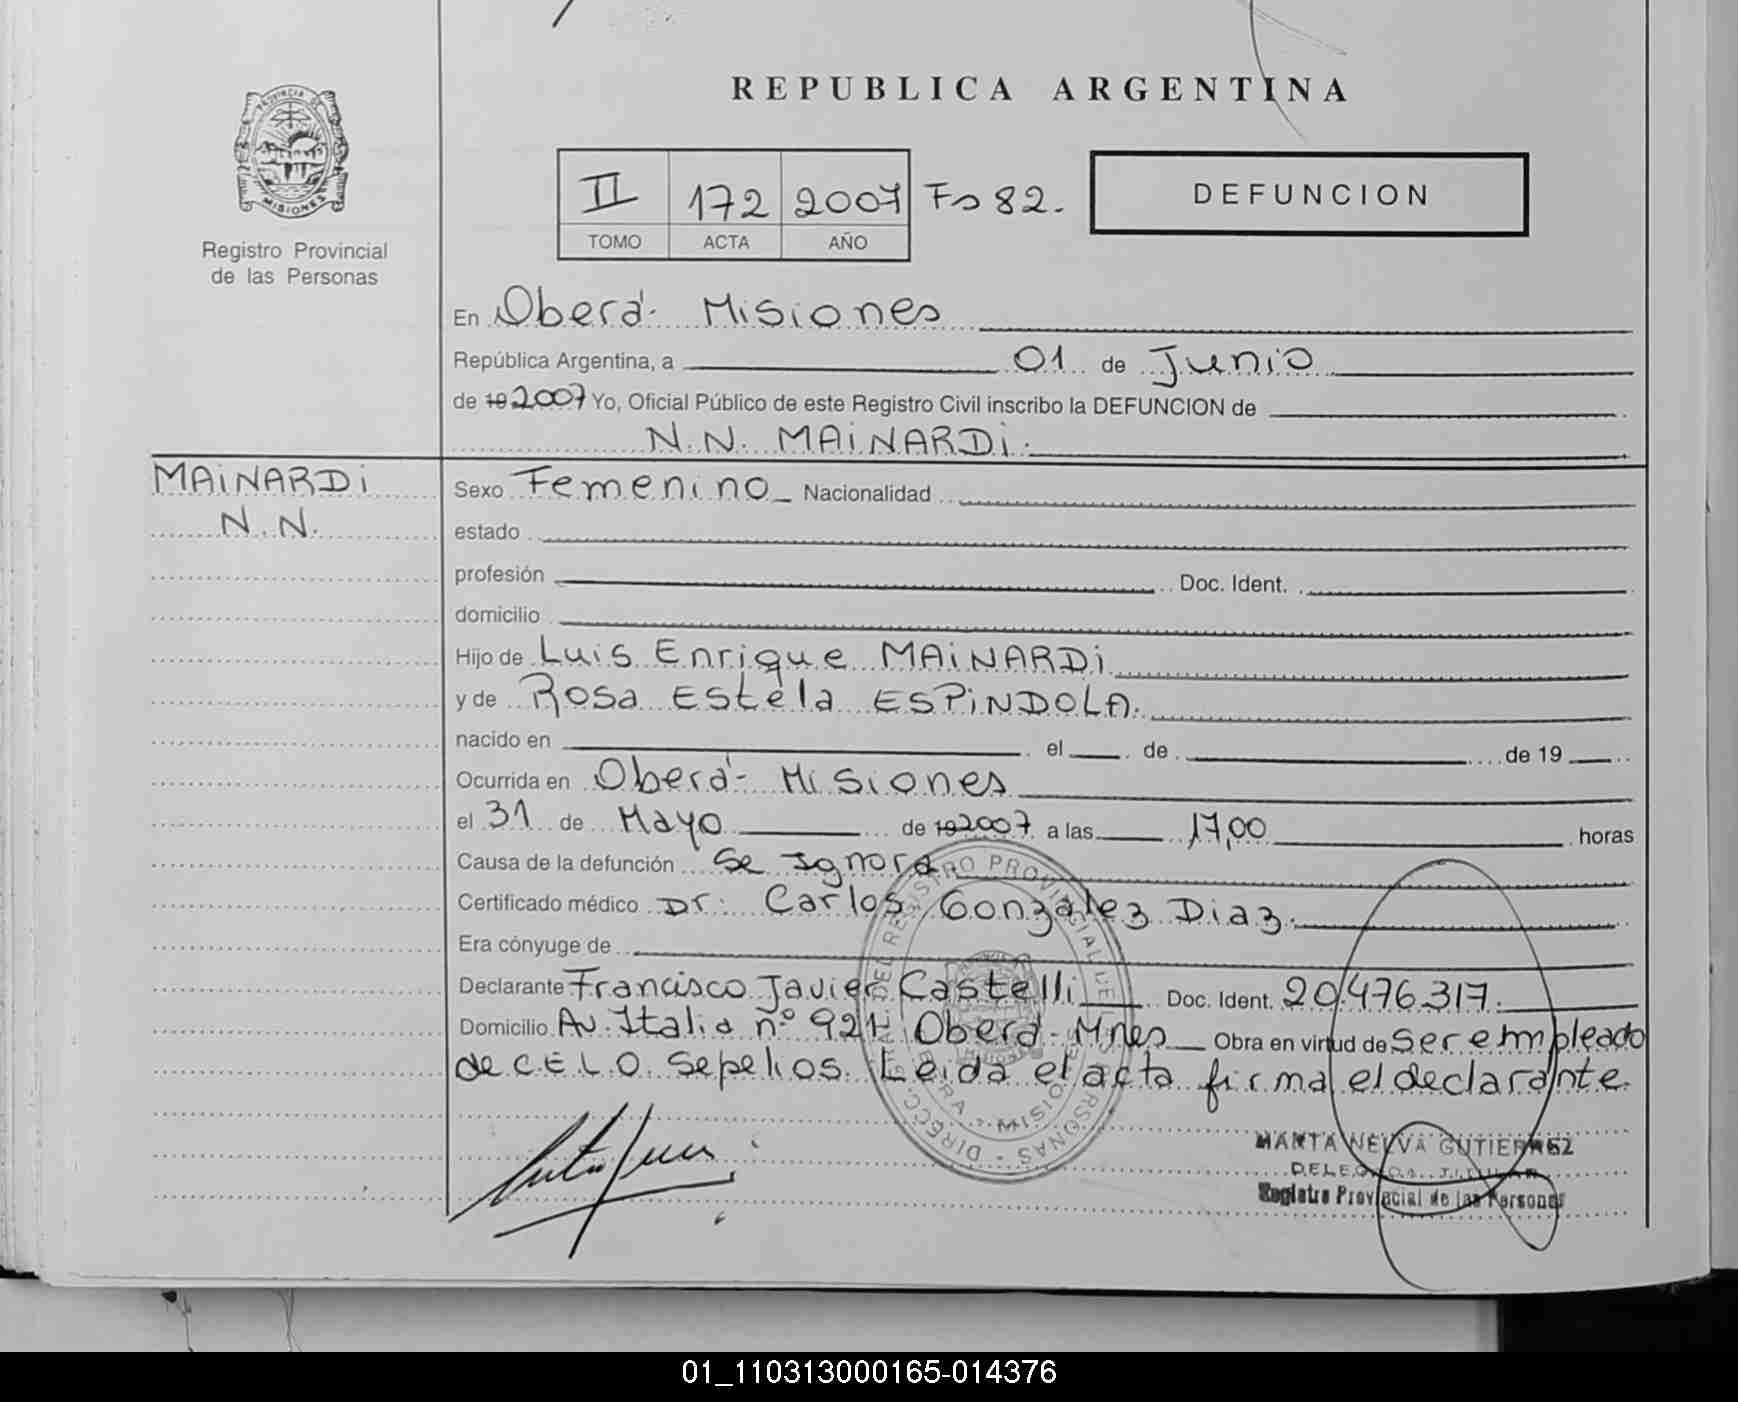 REPUBLICA ARGENTINA
PROVINCIA DE
MISIONES
Registro Provincial
de las Personas
II 172 2007 Fo 82.
TOMO ACTA AÑO
DEFUNCION
En Oberá- Misiones
República Argentina, a 01 de Junio
de 19 2007 Yo, Oficial Público de este Registro Civil inscribo la DEFUNCION de
N.N. MAiNARDi.
MAiNARDi
N.N.
Sexo Femenino Nacionalidad
estado
profesión Doc. Ident.
domicilio
Hijo de Luis Enrique MAiNARDi
y de Rosa Estela ESPiNDOLA.
nacido en el de de 19
Ocurrida en Oberá- Misiones
el 31 de Mayo de 19 2007 a las 17,00 horas
Causa de la defunción Se Ignora
Certificado médico Dr. Carlos Gonzalez Diaz.
Era cónyuge de
Declarante Francisco Javier Castelli Doc. Ident. 20.476.317.
Domicilio Av. Italia nº 921 Oberá- Mnes Obra en virtud de ser empleado
de C.E.L.O. Sepelios. Leida el acta firma el declarante.
MARTA NELVA GUTIERREZ
DELEGADA TITULAR
Registro Provincial de las Personas
01_110313000165-014376